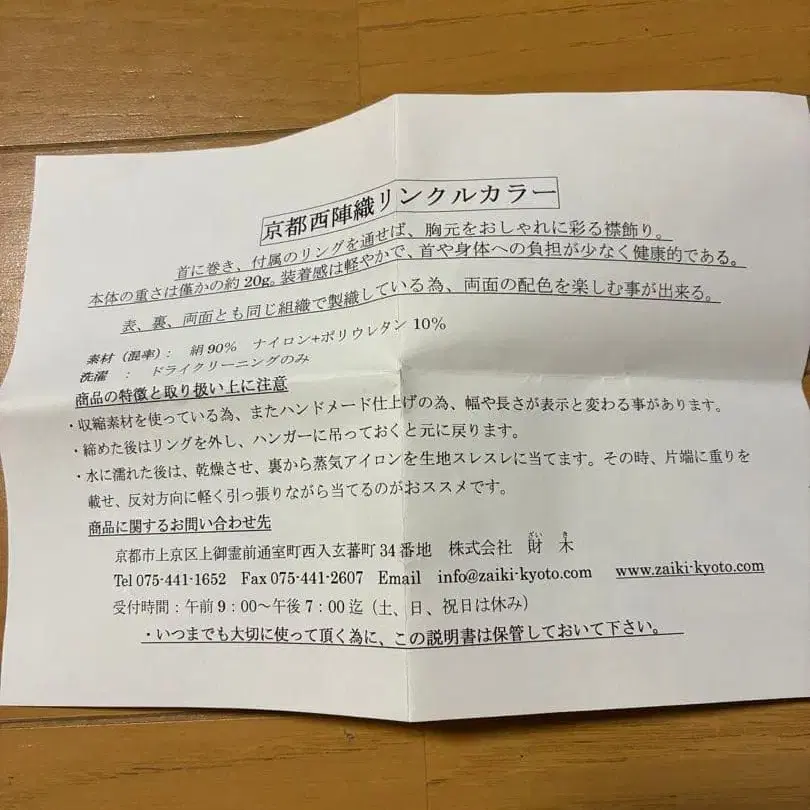 京都西陣織リンクルカラー
首に巻き、付属のリングを通せば、胸元をおしゃれに彩る襟飾り。
本体の重さは僅かの約20g。装着感は軽やかで、首や身体への負担が少なく健康的である。
表、裏、両面とも同じ組織で製織している為、両面の配色を楽しむ事が出来る。
素材（混率）： 絹90% ナイロン+ポリウレタン10%
洗濯 ： ドライクリーニングのみ
商品の特徴と取り扱い上に注意
・収縮素材を使っている為、またハンドメード仕上げの為、幅や長さが表示と変わる事があります。
・締めた後はリングを外し、ハンガーに吊っておくと元に戻ります。
・水に濡れた後は、乾燥させ、裏から蒸気アイロンを生地スレスレに当てます。その時、片端に重りを
載せ、反対方向に軽く引っ張りながら当てるのがおススメです。
商品に関するお問い合わせ先
ざい き
京都市上京区上御霊前通室町西入玄蕃町34番地 株式会社 財 木
Tel 075-441-1652 Fax 075-441-2607 Email info@zaiki-kyoto.com www.zaiki-kyoto.com
受付時間：午前9：00～午後7：00迄（土、日、祝日は休み）
・いつまでも大切に使って頂く為に、この説明書は保管しておいて下さい。